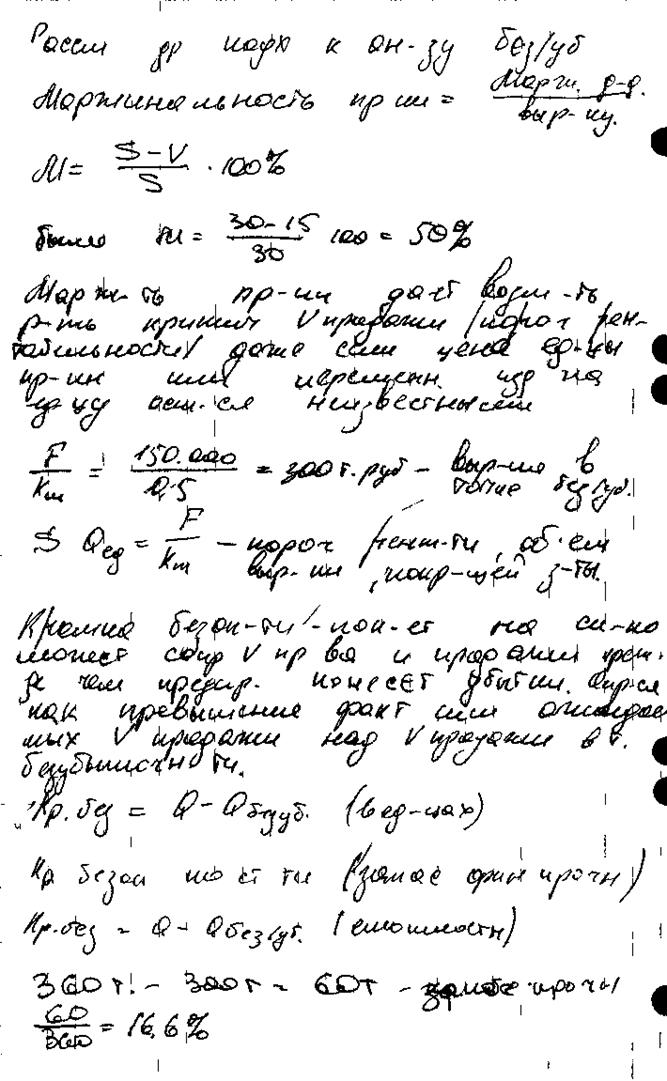 Рассм др подх к ан-зу без/уб
Маржинальность пр-ии = Марж. д-д. / выр-ку.
M = (S-V)/S · 100%
было m = (30-15)/30 100 = 50%
Марж-ть пр-ии дает возм-ть
р-ть критич V продажи (порог рен-
табельности) даже если цена ед-цы
пр-ии или перемен. изд на
ед-цу ост-ся неизвестными
F/Km = 150.000/0,5 = 300 т. руб - выр-ка в
точке без/уб.
S Qед = F/Km - порог рент-ти, объем
выр-ки, покр-щей з-ты.
Кромка безоп-ти - пок-ет на ск-ко
может сокр V пр-ва и продажи преж-
де чем предпр. понесет убытки. Опр-ся
как превышение факт или ожидае-
мых V продажи над V продажи в т.
безубыточности.
Кр. без = Q - Qбезуб. (в ед-цах)
Кр безоп ности (запас фин прочн)
Кр.без = Q - Qбез/уб. (стоимости)
360 т. - 300 т = 60 т - запас прочн
60/360 = 16,6%